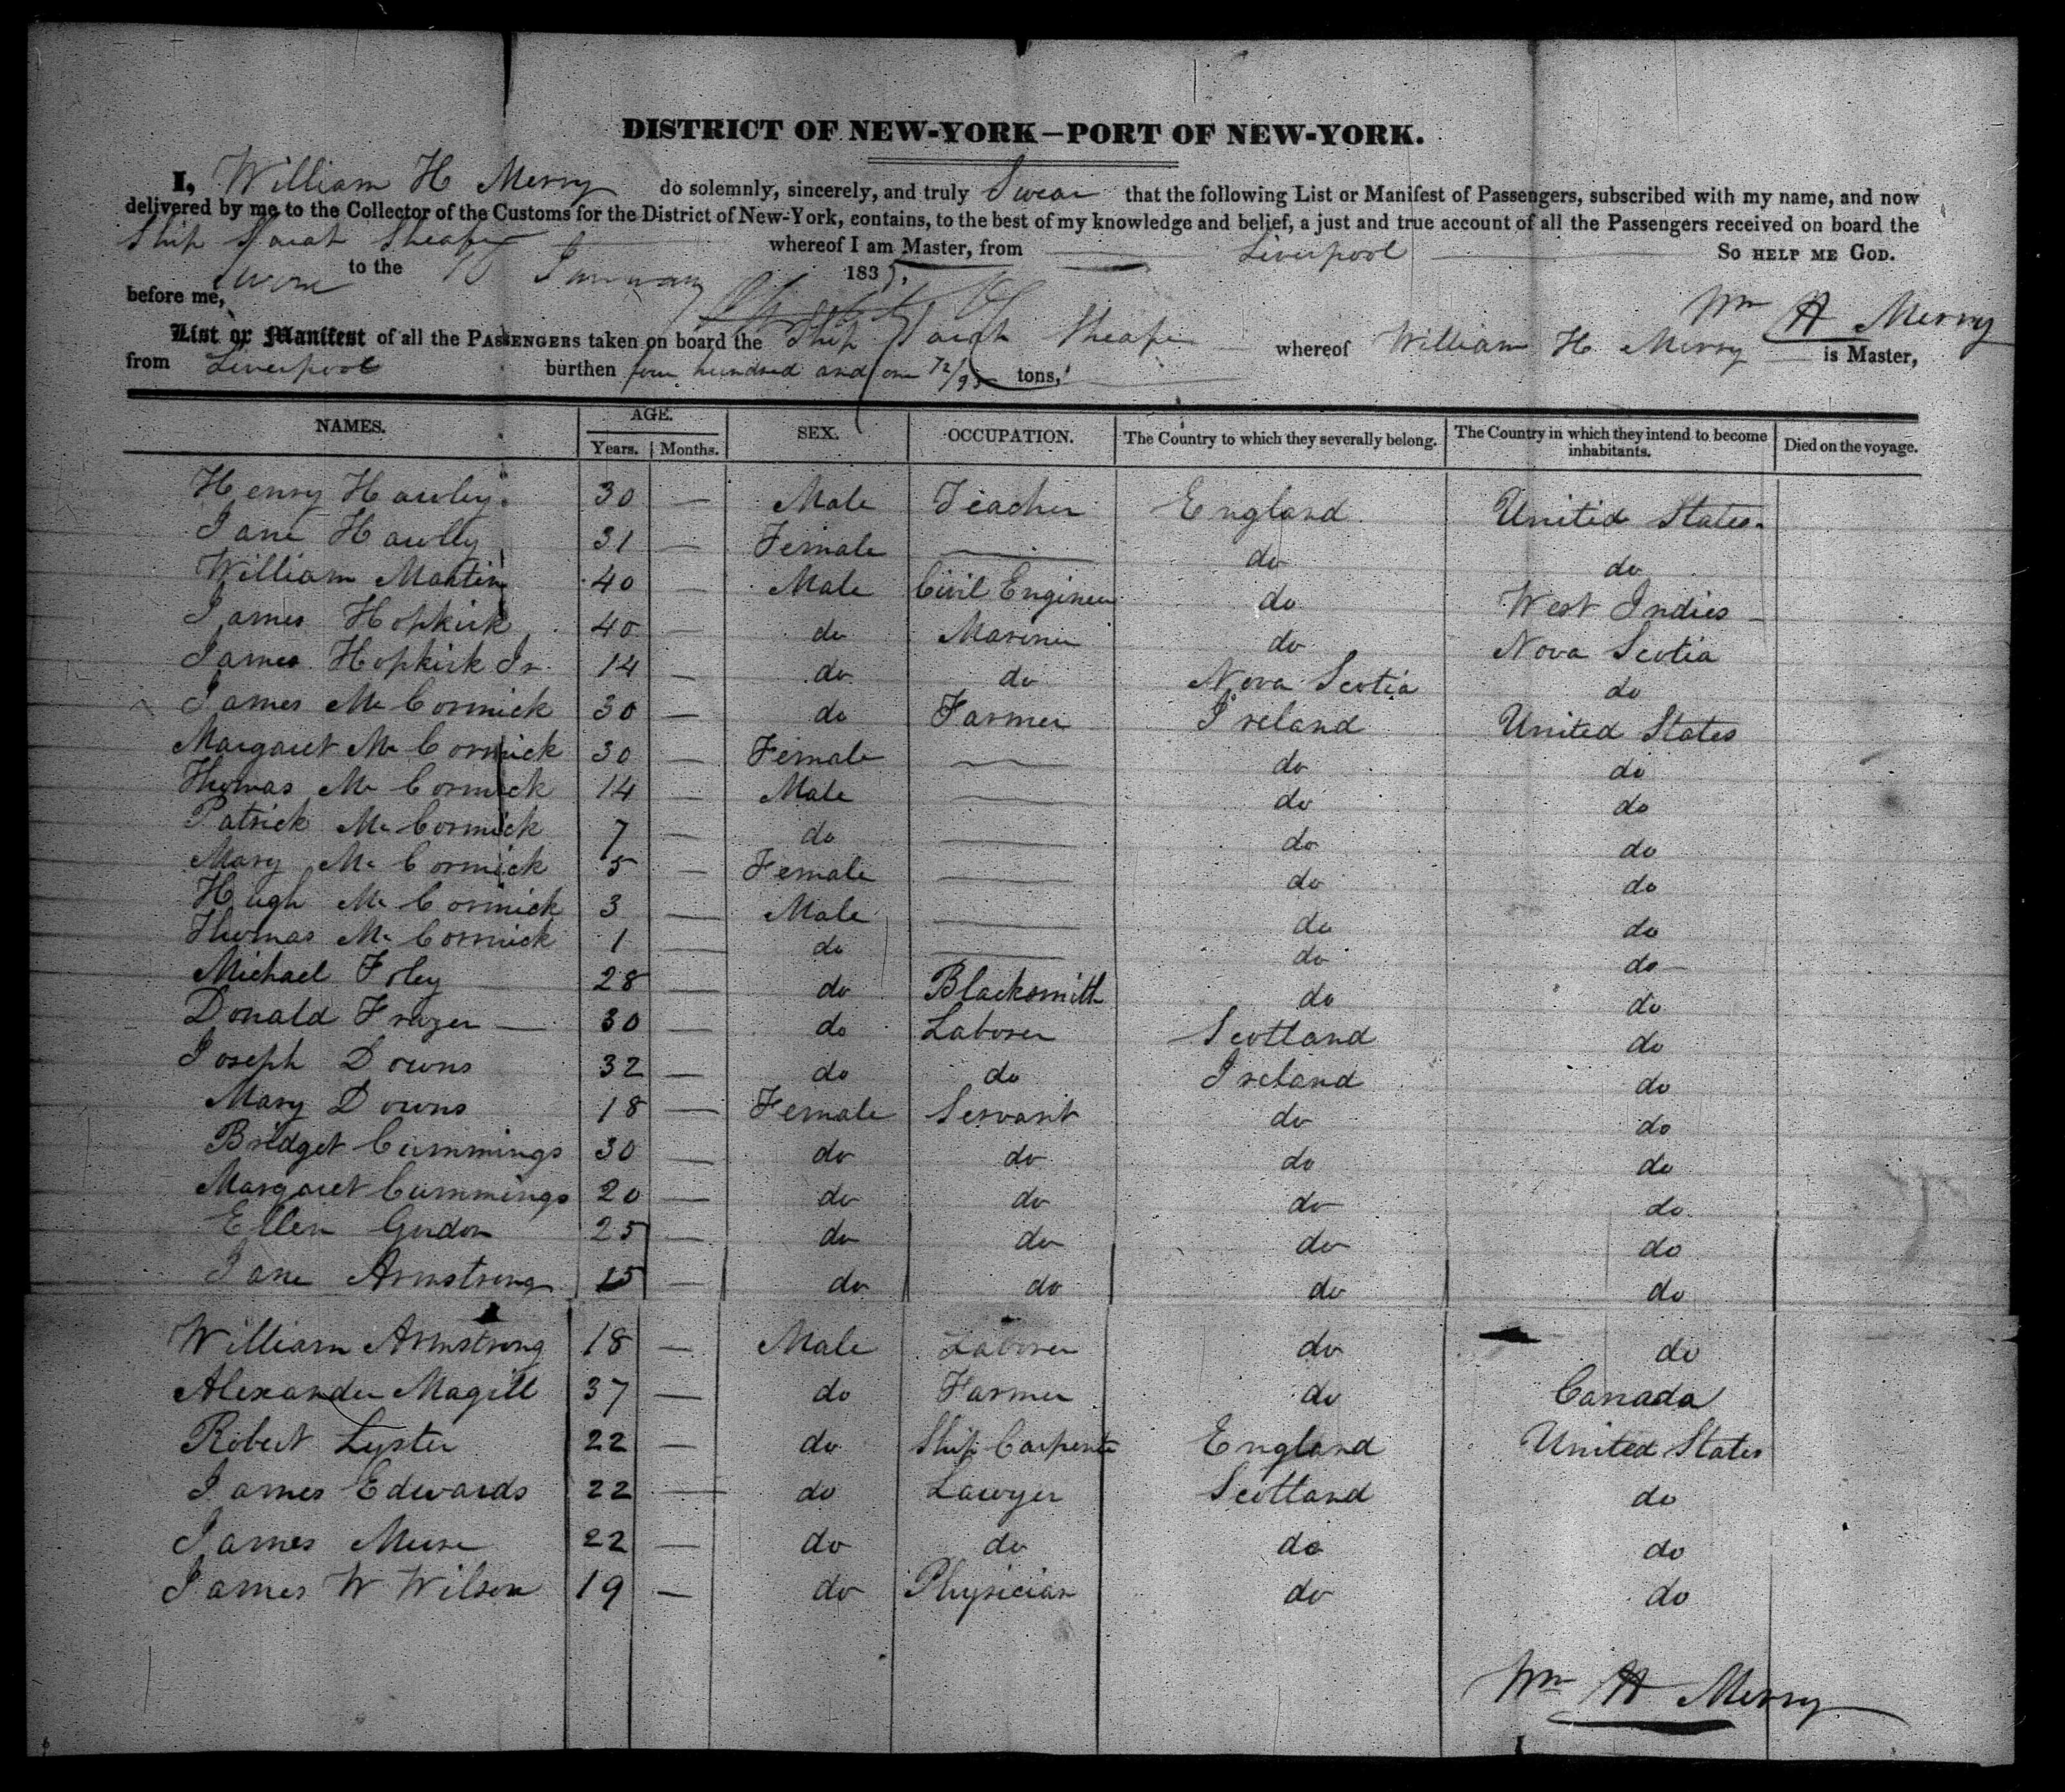 DISTRICT OF NEW-YORK—PORT OF NEW-YORK.
I, William H Merry do solemnly, sincerely, and truly Swear that the following List or Manifest of Passengers, subscribed with my name, and now
delivered by me to the Collector of the Customs for the District of New-York, contains, to the best of my knowledge and belief, a just and true account of all the Passengers received on board the
Ship Sarah Sheafe whereof I am Master, from Liverpool So HELP ME GOD.
Sworn to the January 1835.
before me,
Wm H Merry
List or Manifest of all the PASSENGERS taken on board the Ship Sarah Sheafe whereof William H. Merry is Master,
from Liverpool burthen four hundred and one 72/95 tons,
NAMES. AGE. SEX. OCCUPATION. The Country to which they severally belong. The Country in which they intend to become inhabitants. Died on the voyage.
Years. Months.
Henry Hawley 30 — Male Teacher England United States
Jane Hawley 31 — Female — do do
William Martin 40 — Male Civil Engineer do West Indies
James Hopkirk 40 — do Mariner do Nova Scotia
James Hopkirk Jr. 14 — do do Nova Scotia do
James McCormick 30 — do Farmer Ireland United States
Margaret McCormick 30 — Female — do do
Thomas McCormick 14 — Male — do do
Patrick McCormick 7 — do — do do
Mary McCormick 5 — Female — do do
Hugh McCormick 3 — Male — do do
Thomas McCormick 1 — do — do do
Michael Foley 28 — do Blacksmith do do
Donald Frazer 30 — do Laborer Scotland do
Joseph Downs 32 — do do Ireland do
Mary Downs 18 — Female Servant do do
Bridget Cummings 30 — do do do do
Margaret Cummings 20 — do do do do
Ellen Gordon 25 — do do do do
Jane Armstrong 15 — do do do do
William Armstrong 18 — Male Laborer do do
Alexander Magill 37 — do Farmer do Canada
Robert Lyster 22 — do Ship Carpenter England United States
James Edwards 22 — do Lawyer Scotland do
James Muse 22 — do do do do
James W Wilson 19 — do Physician do do
Wm H Merry